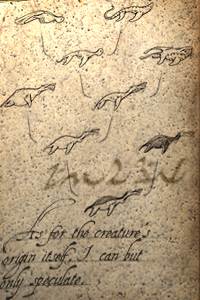 As for the creature's
origin itself, I can but
only speculate.